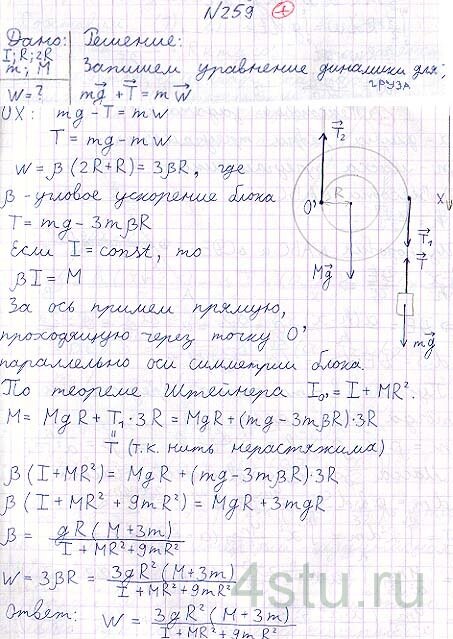 N259 +
Дано: Решение:
I; R; 2R
m; M
Запишем уравнение динамики для
груза
W = ?
mg⃗ + T⃗ = mw⃗
OX: mg - T = mw
T = mg - mw
w = β(2R+R) = 3βR, где
β - угловое ускорение блока
T = mg - 3mβR
Если I = const, то
βI = M
За ось примем прямую,
проходящую через точку O'
параллельно оси симметрии блока.
По теореме Штейнера I₀' = I + MR².
M = MgR + T₁·3R = MgR + (mg - 3mβR)·3R
T (т.к. нить нерастяжима)
β(I+MR²) = MgR + (mg - 3mβR)·3R
β(I + MR² + 9mR²) = MgR + 3mgR
β = gR(M+3m) / I + MR² + 9mR²
W = 3βR = 3gR²(M+3m) / I + MR² + 9mR²
Ответ: W = 3gR²(M+3m) / I + MR² + 9mR²
T⃗₂
R
O'
X
T⃗₁
T⃗
Mg⃗
mg⃗
4stu.ru